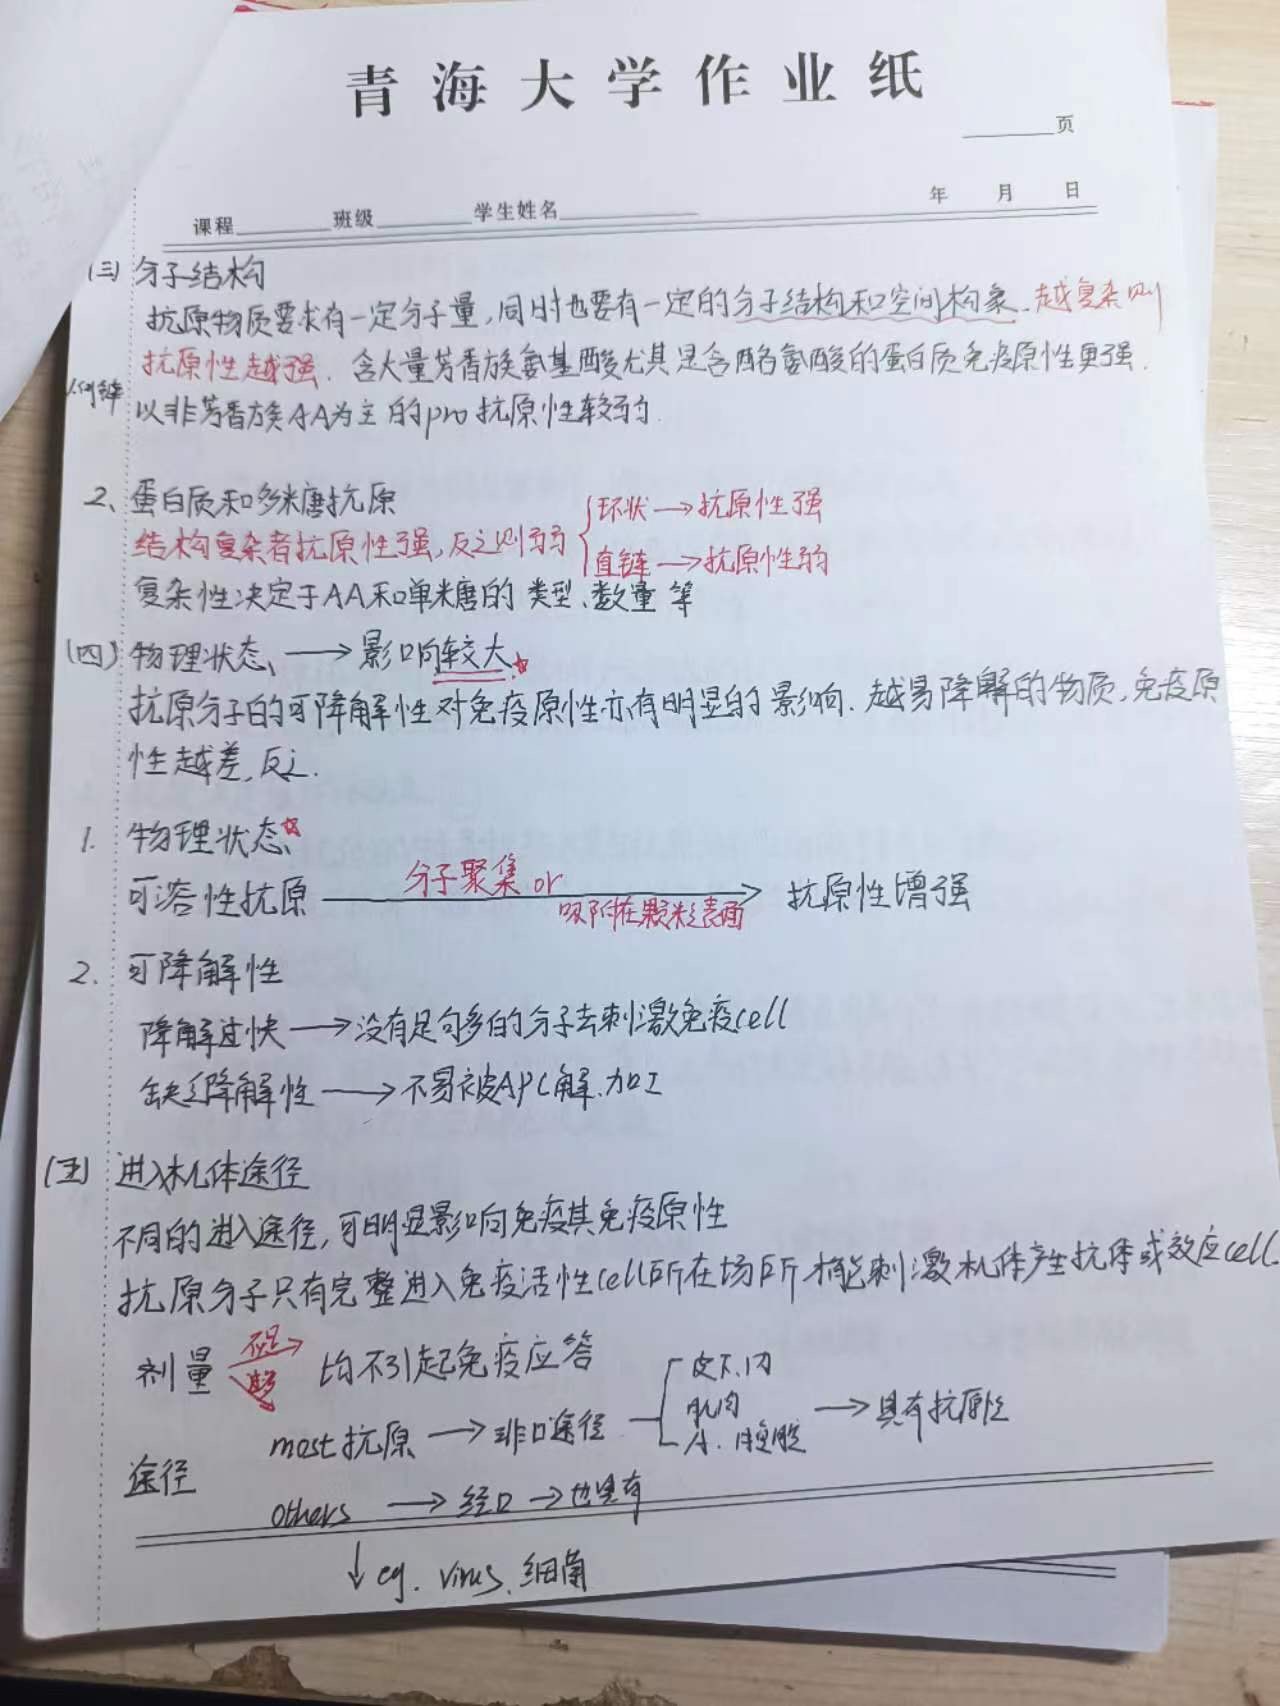 青海大学作业纸
页
年 月 日
课程 班级 学生姓名
(三) 分子结构
抗原物质要求有一定分子量,同时也要有一定的分子结构和空间构象.越复杂则
抗原性越强.含大量芳香族氨基酸尤其是含酪氨酸的蛋白质免疫原性更强.
以非芳香族AA为主的pro抗原性较弱.
2、蛋白质和多糖抗原
结构复杂者抗原性强,反之则弱
环状→抗原性强
直链→抗原性弱
复杂性决定于AA和单糖的类型、数量等
(四) 物理状态、→影响较大.☆
抗原分子的可降解性对免疫原性亦有明显的影响.越易降解的物质,免疫原
性越差,反之.
1. 物理状态☆
可溶性抗原 分子聚集or 吸附在颗粒表面→ 抗原性增强
2. 可降解性
降解过快→没有足够多的分子去刺激免疫cell
缺乏降解性→不易被APC解.加工
(五) 进入机体途径
不同的进入途径,可明显影响免疫其免疫原性
抗原分子只有完整进入免疫活性cell所在场所才能刺激机体产生抗体或效应cell.
剂量 均不引起免疫应答
途径 most抗原→非口途径
皮下.内
肌肉
腹腔
→具有抗原性
others→经口→也具有
↓eg. virus.细菌